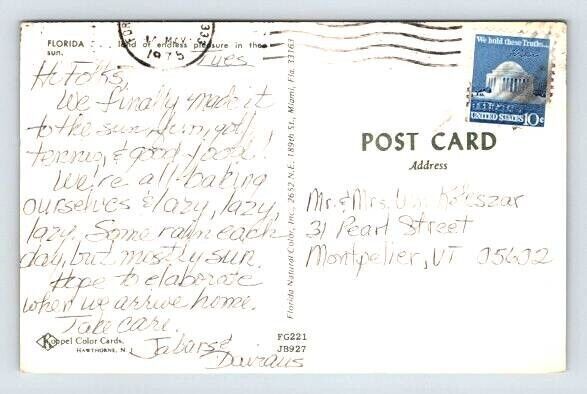 FLORIDA . . . land of endless pleasure in the
sun.
MAY
1975
333
Tues
Hi Folks,
We finally made it
to the sun, fun, golf,
tennis, & good food!
We're all baking
ourselves & lazy, lazy,
lazy. Some rain each
day, but mostly sun.
Hope to elaborate
when we arrive home.
Take care.
Koppel Color Cards
HAWTHORNE, N. J.
FG221
JB927
Florida Natural Color, Inc., 2652 N.E. 189th St., Miami, Fla. 33163
We hold these Truths...
UNITED STATES 10c
POST CARD
Address
Mr. & Mrs. Wm
31 Pearl Street
Montpelier, VT 05602